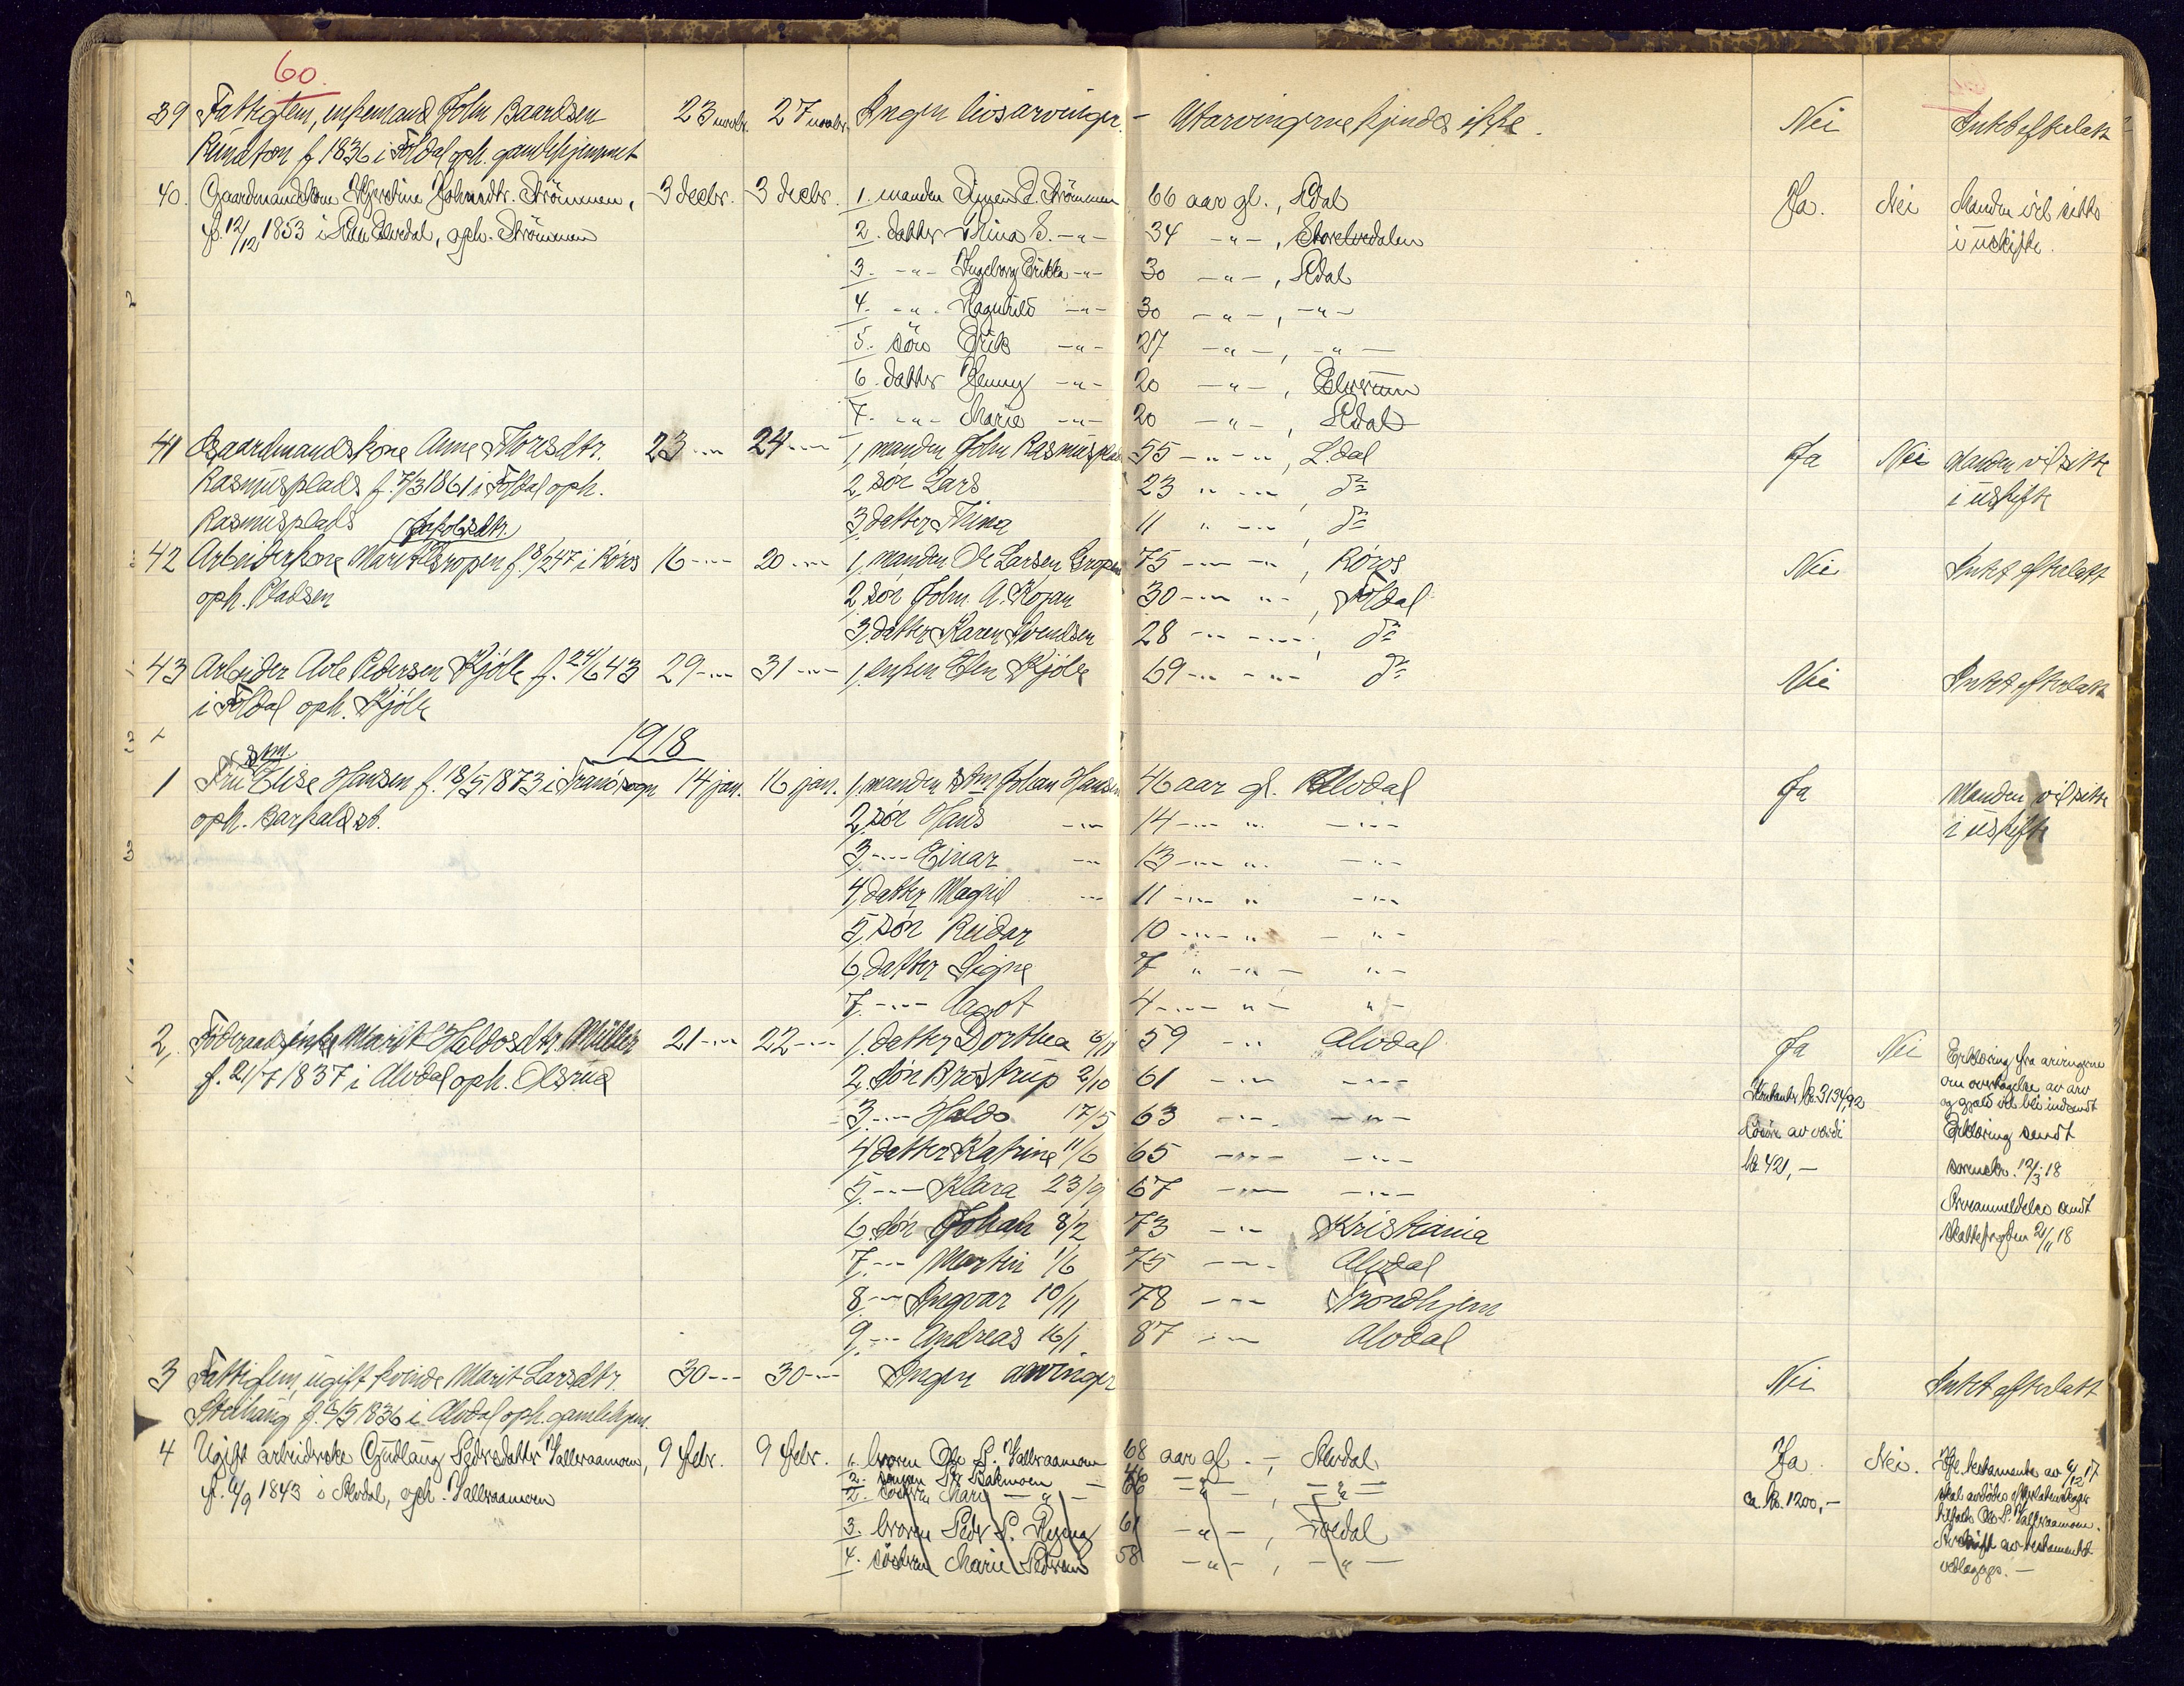 60.
39 Fattiglem, enkemand John Baardsen 23 novbr. 27 novbr. Ingen livsarvinger. - Utarvingerne kjendes ikke. Nei Intet efterlatt
f 1836 i Foldal oph. gamlehjemmet
40. Gaardmandskone Kjerstine Johnsdtr. Strömmen, 3 decbr. 3 decbr. 1. manden Simen E. Strömmen 66 aar gl., Aldal Ja. Nei Manden vil sitte
f. 12/12 1853 i Elvedal, oph. Strömmen 2. datter Mina S. -"- 34 -"-, Storelvedalen i uskifte.
3. -"- Ingeborg Erikka -"- 30 -"-, Aldal
4. -"- Ragnhild -"- 30 -"-, -"-
5. sön Erik -"- 27 -"-, -"-
6. datter Jenny -"- 20 -"-, Elverum
7. -"- Marie -"- 20 -"-, Aldal
41 Gaardmandskone Anne Thoresdtr. 23 -"- 24 -"- 1, manden John Rasmusplads 55 -"- ", L.dal Ja Nei Manden vil sitte
Rasmusplads f. 7/3 1861 i Foldal oph. 2, sön Lars 23 " -"-, do i uskifte
Rasmusplads 3, datter Trina 11 " -"-, do
Jakobsdtr.
42 Arbeiderkone Marit Gropen f. 8/2 47 i Röros 16 -"- 20 -"- 1, manden Ole Larsen Gropen 75 -"- ", Röros Nei Intet efterlatt
oph. Pladsen 2, sön John A. Kojan 30 -"- ", Foldal
3, datter Karen Svendsen 28 -"- -"-, do
43 Arbeider Avle Pedersen Kjölle f. 24/6 43 29 -"- 31 -"- 1, enken Elen Kjölle 69 -"- -"- do Nei Intet efterlatt
i Foldal oph. Kjölle
1918
1 Fru Elise Hansen f. 18/5 1873 i Tranö sogn 14 jan. 16 jan. 1, manden Johan Hansen 46 aar gl. Alvdal Ja Manden vil sitte
oph. Barkald st. 2, sön Hans -"- 14 -"- " -"- i uskifte
3, -"- Einar -"- 13 -"- " -"-
4, datter Magnil -"- 11 -"- " -"-
5, sön Reidar 10 -"- " - "-
6, datter Signe 7 " -"- "-
7, -"- Aagot 4 -"- "- "-
2, Föderaadsenke Marit Haldosdtr. Müller 21 -"- 22 -"- 1, datter Dorthea 6/11 59 -"- Alvdal Ja Nei Erklæring fra arvingerne
f. 21/7 1837 i Alvdal oph. Olsrud 2, sön Brostrup 2/10 61 -"- -"- om overtagelse av arv
3, -"- Haldo 17/5 63 -"- -"- Kontanter kr. 3134,92 og gjæld vil bli indsendt
4, datter Katrine 11/6 65 -"- -"- Lösöre av værdi Erklæring sendt
5, -"- Klara 23/9 67 -"- -"- kr. 421,- sorenskr. 12/3 18
6, sön Johan 8/2 73 -"- Kristiania Arveanmeldelse sendt
7, -"- Martin 1/6 75 -"- Alvdal skattefogden 21/11 18
8, -"- Ingvar 10/11 78 -"- Trondhjem
9, -"- Andreas 16/1 87 -"- Alvdal
3 Fattiglem, ugift kvinde Marit Larsdtr. 30 -"- 30 -"- Ingen arvinger Nei Intet efterlatt
Steihaug f. 6/5 1836 i Alvdal oph. gamlehjem.
4 Ugift arbeiderske Gudlaug Pedersdatter Vallraamoen, 9 febr. 9 febr. 1. broren Ole P. Vallraamoen 68 aar gl. -, Alvdal Ja. Nei. Ifl. testamente av 6/12 17
f. 4/9 1843 i Alvdal, oph. Vallraamoen 2. Bakmoen -"- -"- skal avdödes efterladenskaper
2. söstren Mari -"- 66 -"-, -"- ca. kr. 1200,- tilfalde Ole P. Vallraamoen.
3. broren Peder P. 61 -"-, Foldal Avskrift av testamentet
4. söstren Marie Pedersen 58 -"-, -"- vedlægges. -